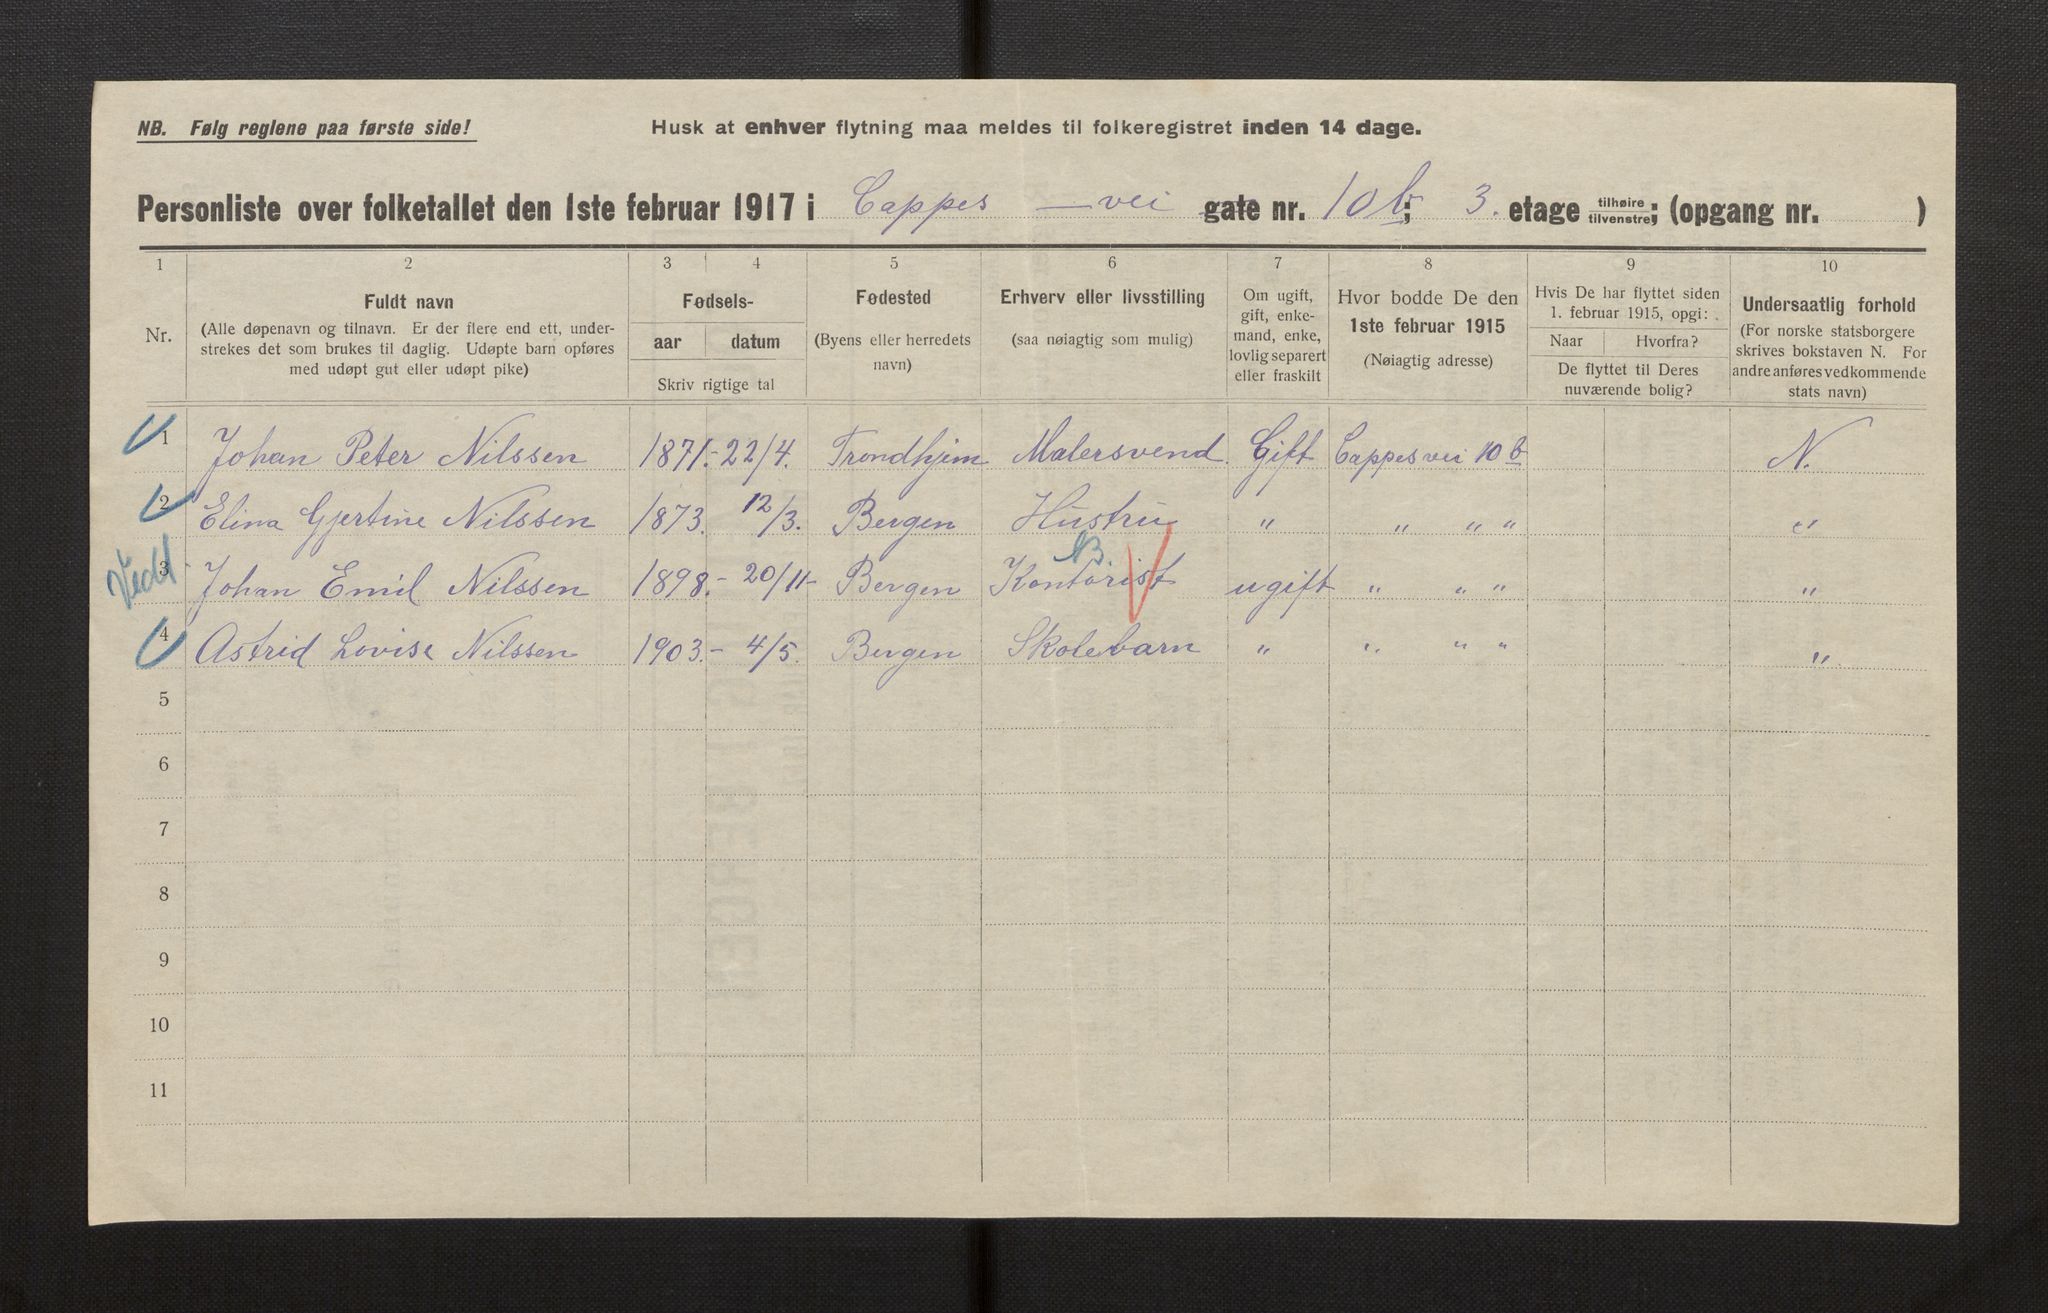 NB. Følg reglene paa første side! Husk at enhver flytning maa meldes til folkeregistret inden 14 dage.
Personliste over folketallet den 1ste februar 1917 i Cappes — vei gate nr. 10 b; 3. etage tilhøire/tilvenstre; (opgang nr. )
1 2 3 4 5 6 7 8 9 10
Nr.
Fuldt navn
(Alle døpenavn og tilnavn. Er der flere end ett, under-
strekes det som brukes til daglig. Udøpte barn opføres
med udøpt gut eller udøpt pike)
Fødsels-
aar datum
Skriv rigtige tal
Fødested
(Byens eller herredets
navn)
Erhverv eller livsstilling
(saa nøiagtig som mulig)
Om ugift,
gift, enke-
mand, enke,
lovlig separert
eller fraskilt
Hvor bodde De den
1ste februar 1915
(Nøiagtig adresse)
Hvis De har flyttet siden
1. februar 1915, opgi:
Naar Hvorfra?
De flyttet til Deres
nuværende bolig?
Undersaatlig forhold
(For norske statsborgere
skrives bokstaven N. For
andre anføres vedkommende
stats navn)
1 Johan Peter Nilssen 1871.- 22/4. Trondhjem Malersvend Gift Cappes vei 10 b N.
2 Elina Gjertine Nilssen 1873. 12/3. Bergen Hustru " " " " "
NB.
Vedl. 3 Johan Emil Nilssen 1898.- 20/11- Bergen Kontorist ugift " " " "
4 Astrid Lovise Nilssen 1903.- 4/5. Bergen Skolebarn " " " " "
5
6
7
8
9
10
11